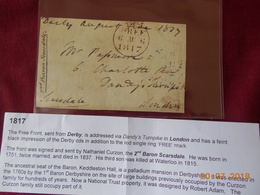 Derby August 1817
FREE
1817
Mr
6 Charlotte
London
Scarsdale
1817
The Free Front, sent from Derby, is addressed via Dandy's Turnpike in London and has a faint
black impression of the Derby cds in addition to the red single ring 'FREE' mark.
The front was signed and sent by Nathaniel Curzon, the 2nd Baron Scarsdale. He was born in
1751, twice married, and died in 1837. His third son was killed at Waterloo in 1815.
The ancestral seat of the Baron, Keddleston Hall, is a palladium mansion in Derbyshire
in the 1760s by the 1st Baron Derbyshire on the site of large buildings previously occupied by the Curzon
family for hundreds of years. Now a National Trust property, it was designed by Robert Adam. The
Curzon family still occupy part of it.
2018